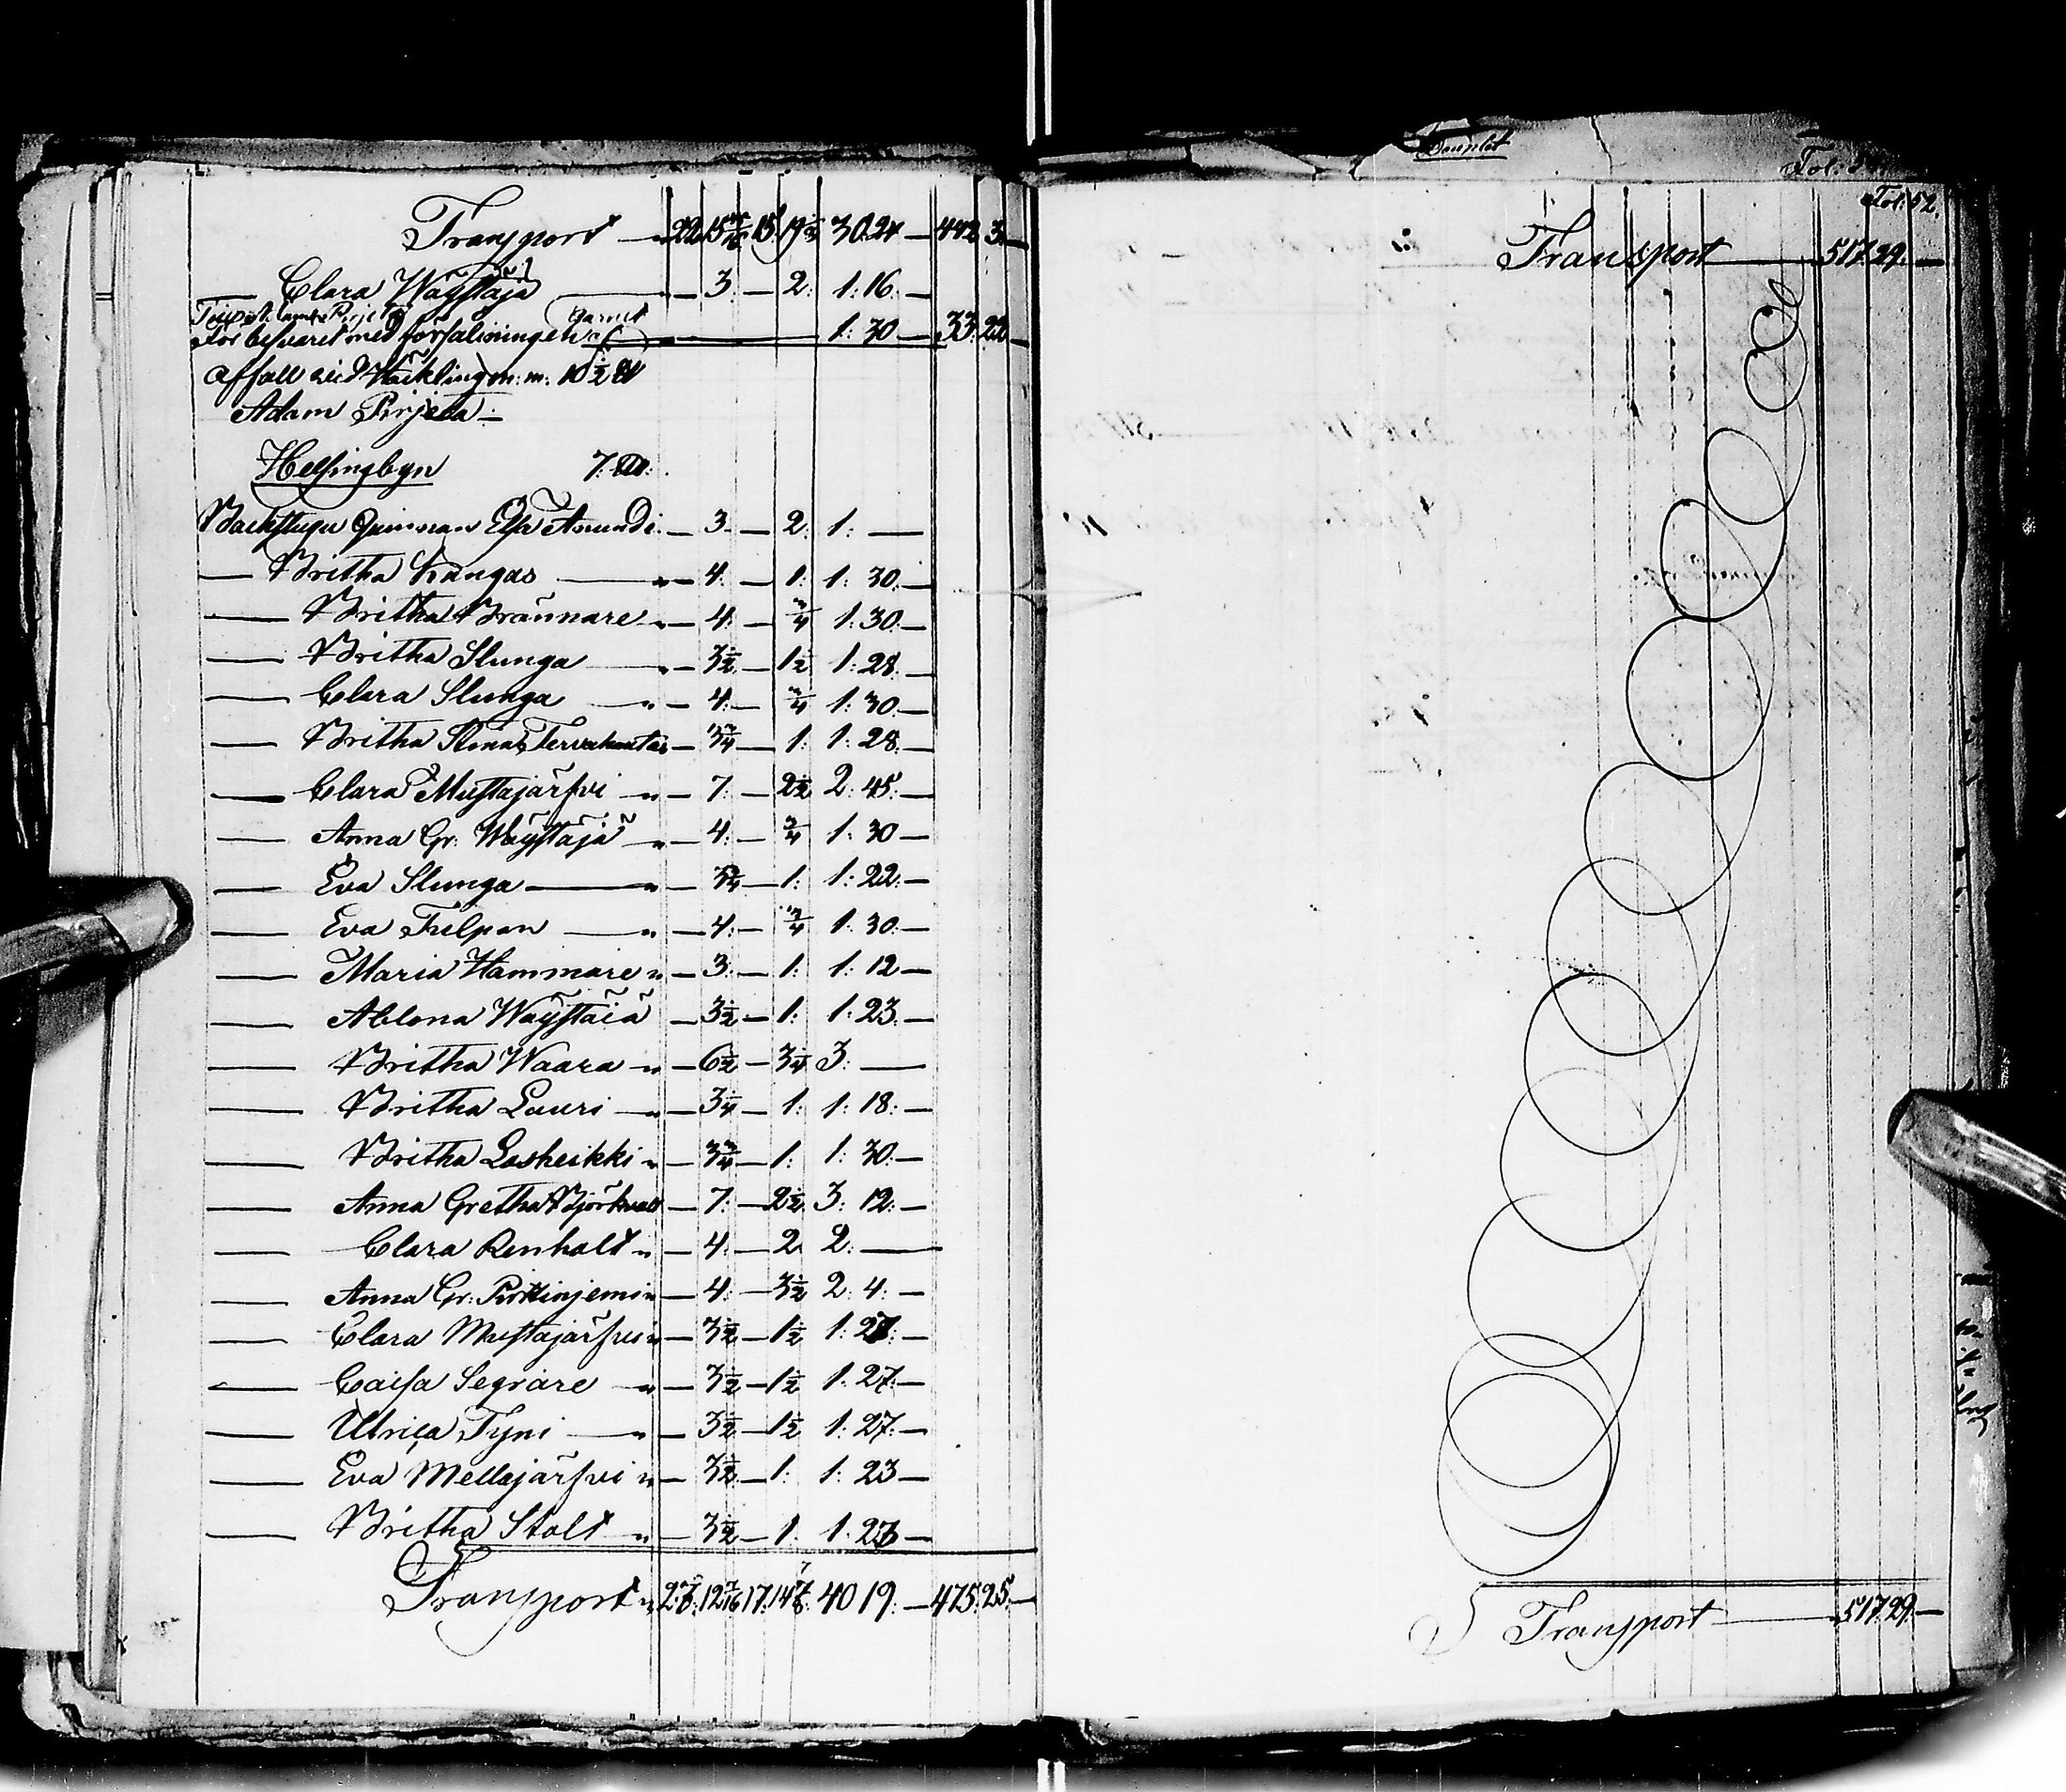 Transport — 22. 15 7/16 15. 19 3/8 30. 24 — 442. 3. —
— Clara Wäÿstäjä — — 3. — 2. 1. 16. —
Adam Pirje
För besväret med försäliningen af Garnet — 1. 30 — 33. 22 —
affall wid Häcklingen m: m: 10 1/2 ℔
Adam Pirjeta. —
Helsingbyn 7. ℔.
Backstugu Qwinnan Elsa Anundi. — 3. — 2. 1. —
— Britha Kangas — " — 4. — 1. 1. 30. —
— Britha Brännare " — 4. — 3/4 1. 30. —
— Britha Slunga — " — 3 1/2 — 1 1/2 1. 28. —
— Clara Slunga — " — 4. — 3/4 1. 30. —
— Britha Stina Tervahauta — 3 3/4 — 1. 1. 28. —
— Clara Mustajärfvi — " — 7. — 2 1/2 2. 45. —
— Anna Gr: Wäÿstäjä — " — 4. — 3/4 1. 30 —
— Eva Slunga — " — 3 1/4 — 1. 1. 22. —
— Eva Fulpan — " — 4. — 3/4 1. 30. —
— Maria Hammare " — 3. — 1. 1. 12 —
— Ablona Wäÿstäiä — 3 1/2 — 1. 1. 23. —
— Britha Waara — " — 6 1/2 — 3 1/4 3. —
— Britha Lauri — " — 3 1/4 — 1. 1. 18. —
— Britha Lasheikki " — 3 3/4 — 1. 1. 30. —
— Anna Gretha Björkvall — 7. — 2 1/2 3. 12. —
— Clara Renhalt " — 4. — 2. 2. —
— Anna Gr: " — 4. — 3 1/2 2. 4. —
— Clara Mustajärfvi " — 3 1/2 — 1 1/2 1. 27. —
— Caisa Segrare — " — 3 1/2 — 1 1/2 1. 27. —
— Ulrica Tyni — " — 3 1/2 — 1 1/2 1. 27. —
— Eva Mellajärfvi " — 3 1/2 — 1. 1. 23 —
— Britha Stålt — " — 3 1/2 — 1. 1. 23 —
Transport " 27. 12 7/16 17. 14 7/8 40 19. — 475. 25. —
Fol: 52.
Transport — 517. 29. —
Transport — 517. 29. —